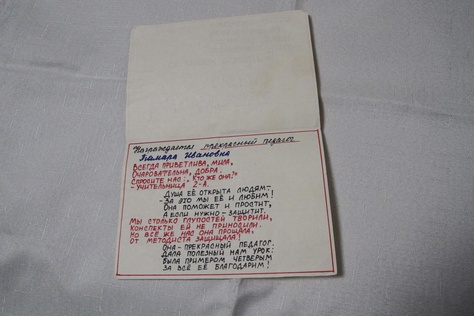 Награждается прекрасный педагог
Тамара Ивановна
ВСЕГДА ПРИВЕТЛИВА, МИЛА,
ОЧАРОВАТЕЛЬНА, ДОБРА.
СПРОСИТЕ НАС: "КТО ЖЕ ОНА?"
- УЧИТЕЛЬНИЦА 2-А.
ДУША ЕЁ ОТКРЫТА ЛЮДЯМ-
- ЗА ЭТО МЫ ЕЁ И ЛЮБИМ!
ОНА ПОМОЖЕТ И ПРОСТИТ,
А ЕСЛИ НУЖНО - ЗАЩИТИТ.
МЫ СТОЛЬКО ГЛУПОСТЕЙ ТВОРИЛИ,
КОНСПЕКТЫ ЕЙ НЕ ПРИНОСИЛИ.
НО ВСЁ ЖЕ НАС ОНА ПРОЩАЛА,
ОТ МЕТОДИСТА ЗАЩИЩАЛА!
ОНА - ПРЕКРАСНЫЙ ПЕДАГОГ.
ДАЛА ПОЛЕЗНЫЙ НАМ УРОК:
БЫЛА ПРИМЕРОМ ЧЕТВЕРЫМ
ЗА ВСЁ ЕЁ БЛАГОДАРИМ!